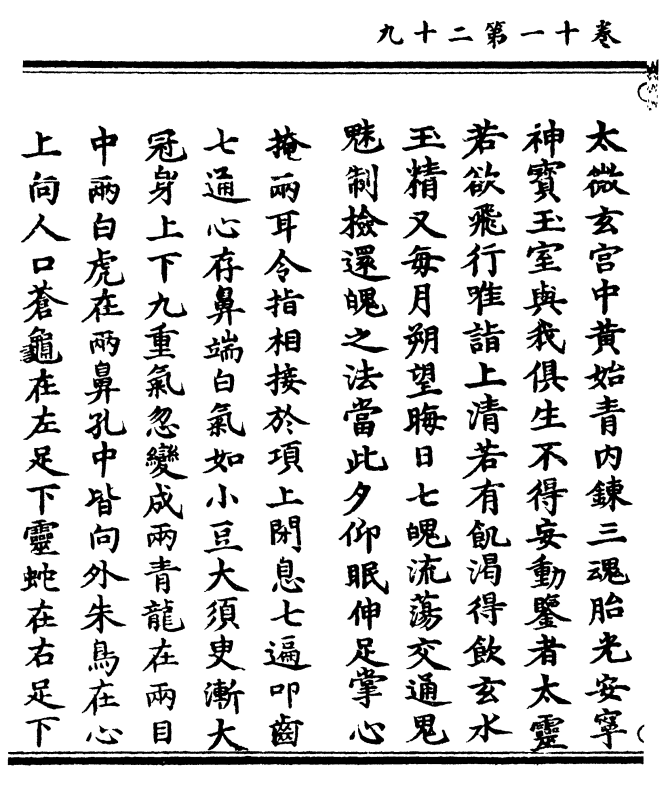 卷十一第二十九
太微玄宫中黄始青内鍊三魂胎光安寧
神寶玉室與我俱生不得妄動鑒者太靈
若欲飛行唯詣上清若有飢渴得飲玄水
玉精又每月朔望晦日七魄流蕩交通鬼
魅制撿還魄之法當此夕仰眠伸足掌心
掩兩耳令指相接於項上閉息七遍叩齒
七通心存鼻端白氣如小豆大須臾漸大
冠身上下九重氣忽變成兩青龍在兩目
中兩白虎在兩鼻孔中皆向外朱鳥在心
上向人口蒼龜在左足下靈蛇在右足下